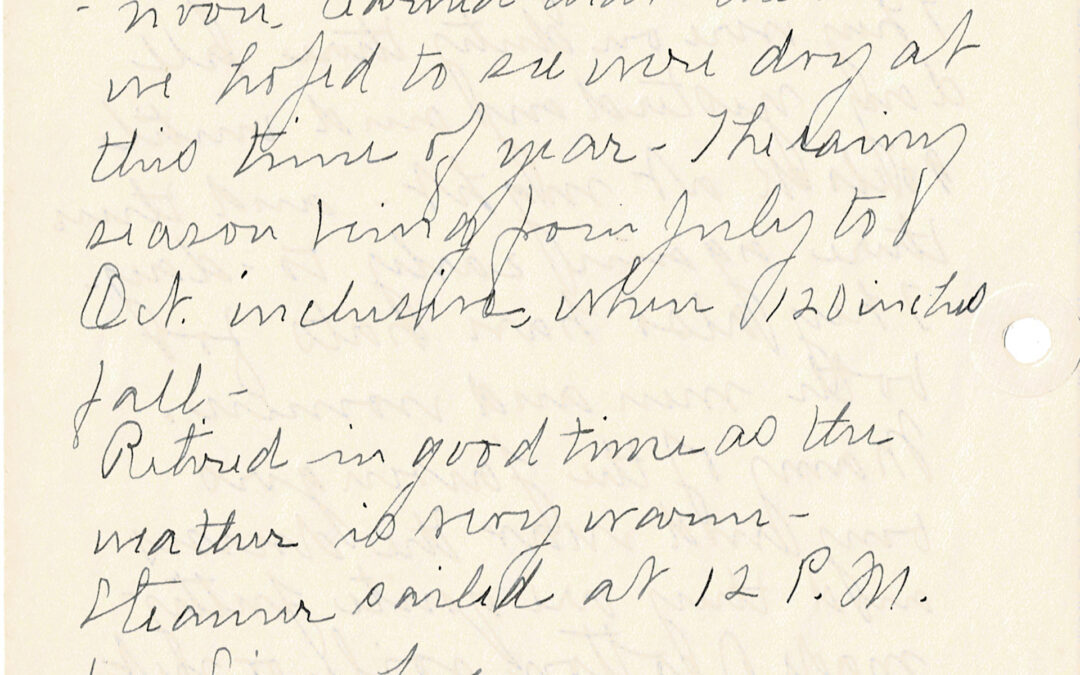 noon. Learned that the
we hoped to see were dry at
this time of year - The rainy
season being from July to
Oct. inclusive, when 120 inches
fall -
Retired in good time as the
weather is very warm -
Steamer sailed at 12 P.M.